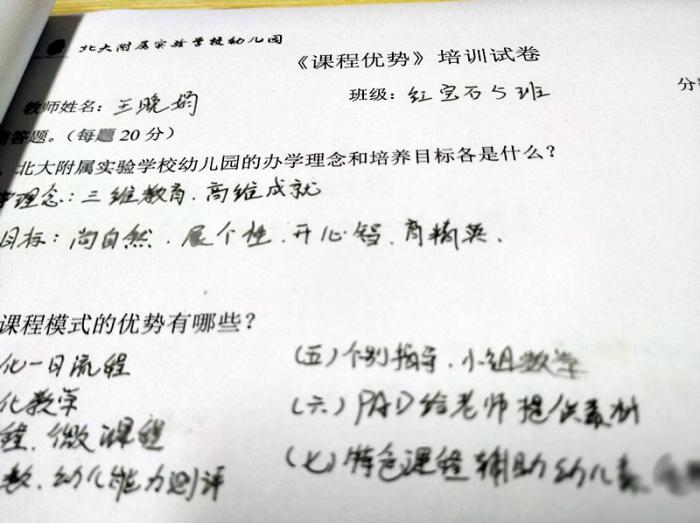 北大附属实验学校幼儿园
《课程优势》培训试卷
教师姓名：王晚娟
班级：红宝石5班
分
简答题。（每题20分）
北大附属实验学校幼儿园的办学理念和培养目标各是什么？
理念：三维教育.高维成就
目标：尚自然.展个性.开心智.育精英.
课程模式的优势有哪些？
化一日流程
（五）个别指导.小组教学
化教学
（六）PAD给老师提供素材
程.微课程
（七）特色课程辅助幼儿
教.幼儿能力测评